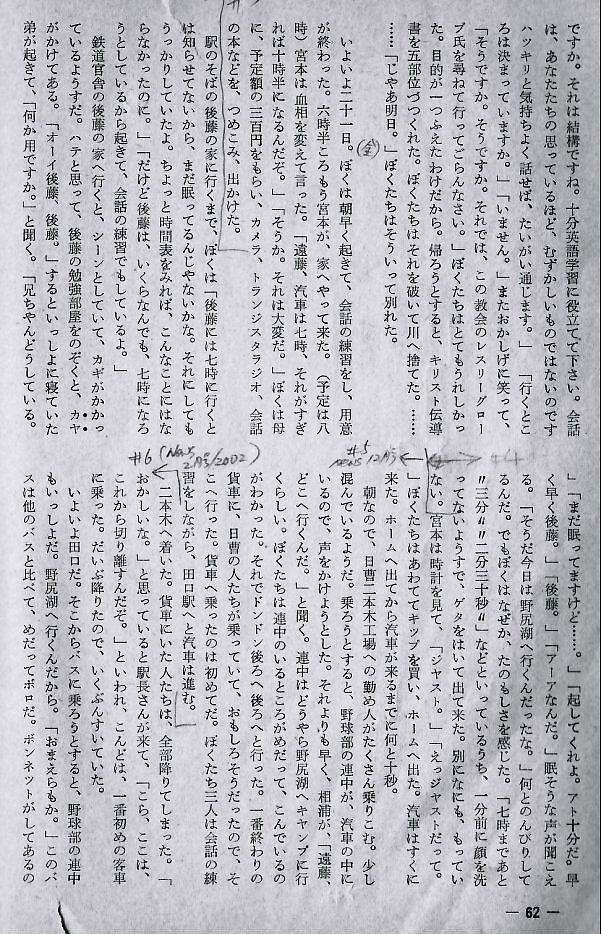 ですか。それは結構ですね。十分英語学習に役立てて下さい。会話
は、あなたたちの思っているほど、むずかしいものではないのです
ハッキリと気持ちよく話せば、たいがい通じます。」「行くとこ
ろは決まっていますか。」「いません。」またおかしげに笑って、
「そうですか。そうですか。それでは、この教会のレスリーグロー
ブ氏を尋ねて行ってごらんなさい。」ぼくたちはとてもうれしかっ
た。目的が一つふえたわけだから。帰ろうとすると、キリスト伝導
書を五部位づつくれた。ぼくたちはそれを破いて川へ捨てた。……
……「じゃあ明日。」ぼくたちはそういって別れた。
いよいよ二十一日。ぼくは朝早く起きて、会話の練習をし、用意
(金)
が終わった。六時半ころもう宮本が、家へやって来た。（予定は八
時）宮本は血相を変えて言った。「遠藤、汽車は七時、それがすぎ
れば十時半になるんだぞ。」「そうか。それは大変だ。」ぼくは母
に、予定額の三百円をもらい、カメラ、トランジスタラジオ、会話
の本などを、つめこみ、出かけた。
駅のそばの後藤の家に行くまで、ぼくは「後藤には七時に行くと
は知らせてないから、まだ眠ってるんじゃないかな。それにしても
うっかりしていたよ。ちょっと時間表をみれば、こんなことにはな
らなかったのに。」「だけど後藤は、いくらなんでも、七時になろ
うとしているから起きて、会話の練習でもしているよ。」
鉄道官舎の後藤の家へ行くと、シーンとしていて、カギがかかっ
ているようすだ。ハテと思って、後藤の勉強部屋をのぞくと、カヤ
がかけてある。「オーイ後藤、後藤。」するといっしょに寝ていた
弟が起きて、「何か用ですか。」と聞く。「兄ちゃんどうしている。
」「まだ眠ってますけど……。」「起してくれよ。アト十分だ。早
く早く後藤。」「後藤。」「アーアなんだ。」眠そうな声が聞こえ
る。「そうだ今日は野尻湖へ行くんだったな。」何とのんびりして
るんだ。でもぼくはなぜか、たのもしさを感じた。「七時まであと
〃三分〃〃二分三十秒〃」などといっているうち、一分前に顔を洗
ってないようすで、ゲタをはいて出て来た。別になにも、もってい
ない。宮本は時計を見て、「ジャスト。」「えっジャストだって。
」ぼくたちはあわててキップを買い、ホームへ出た。汽車はすぐに
来た。ホームへ出てから汽車が来るまでに何と十秒。
#4
#5
News 12月号
朝なので、日曹二本木工場への勤め人がたくさん乗りこむ。少し
混んでいるようだ。乗ろうとすると、野球部の連中が、汽車の中に
いるので、声をかけようとした。それよりも早く、相浦が、「遠藤、
どこへ行くんだ。」と聞く。連中はどうやら野尻湖へキャンプに行
くらしい。ぼくたちは連中のいるところがめだって、こんでいるの
がわかった。それでドンドン後ろへ後ろへと行った。一番終わりの
貨車に、日曹の人たちが乗っていて、おもしろそうだったので、そ
こへ行った。貨車へ乗ったのは初めてだ。ぼくたち三人は会話の練
習をしながら、田口駅へと汽車は進む。
#6 (News 2月号/2002)
二本木へ着いた。貨車にいた人たちは、全部降りてしまった。「
おかしいな。」と思っていると駅長さんが来て、「こら、ここは、
これから切り離すんだぞ。」といわれ、こんどは、一番初めの客車
に乗った。だいぶ降りたので、いくぶんすいていた。
いよいよ田口だ。そこからバスに乗ろうとすると、野球部の連中
もいっしょだ。野尻湖へ行くんだから。「おまえらもか。」このバ
スは他のバスと比べて、めだってボロだ。ボンネットがしてあるの
— 62 —